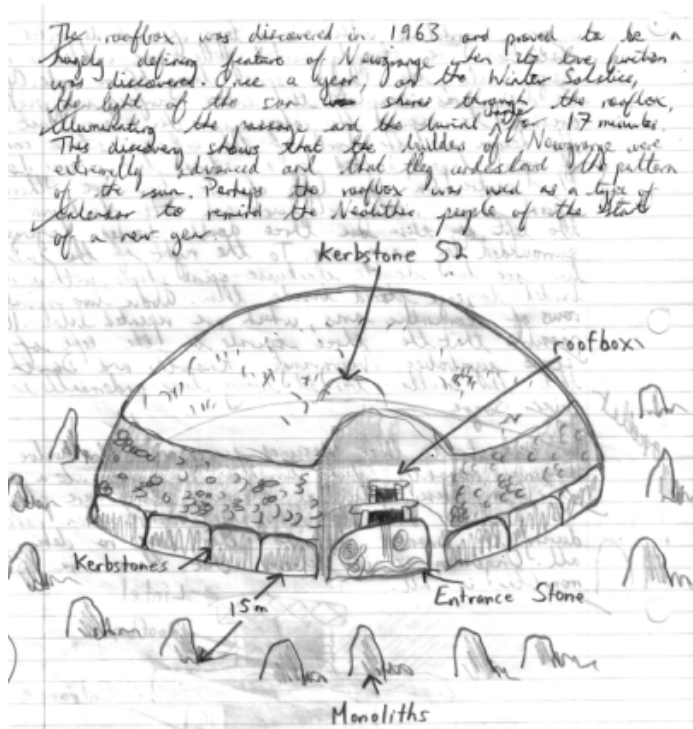 The roofbox was discovered in 1963 and proved to be a
hugely defining feature of Newgrange when its true function
was discovered. Once a year, on the Winter Solstice,
the light of the sun shines through the roofbox,
illuminating the passage and the burial for 17 minutes.
This discovery shows that the builders of Newgrange were
extremelly advanced and that they understand the pattern
of the sun. Perhaps the roofbox was used as a type of
calendar to remind the Neolithic people of the start
of a new year.
Kerbstone 52
roofbox
Kerbstones
15m
Entrance Stone
Monoliths